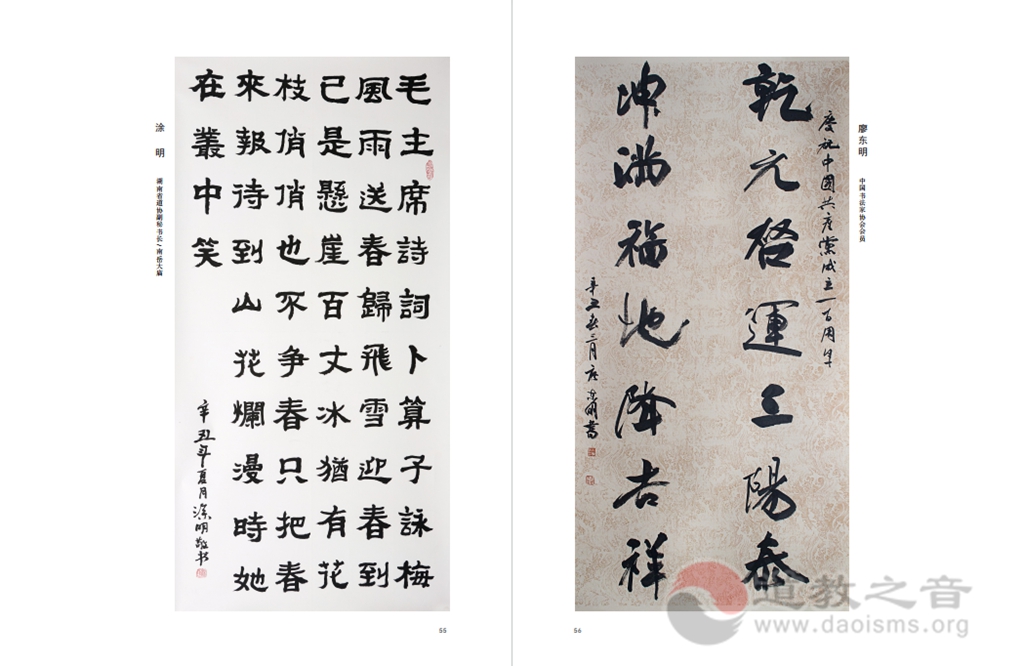 涂 明
湖南省道协副秘书长/南岳大庙
毛主席詩詞卜算子詠梅
風雨送春歸飛雪迎春到
已是懸崖百丈冰猶有花
枝俏俏也不争春只把春
來報待到山花爛漫時她
在叢中笑
辛丑年夏月涂明敬书
55
廖东明
中国书法家协会会员
慶祝中國共産黨成立一百周年
乾元啓運三陽泰
坤滿福地降吉祥
辛丑春三月廖东明書
56
道教之音
www.daoisms.org